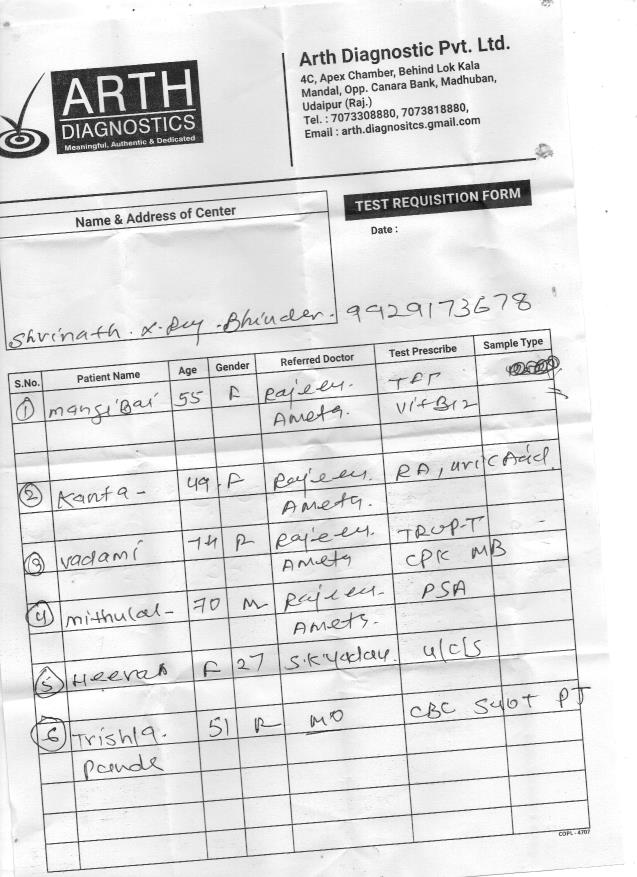 ARTH
DIAGNOSTICS
Meaningful, Authentic & Dedicated
Arth Diagnostic Pvt. Ltd.
4C, Apex Chamber, Behind Lok Kala
Mandal, Opp. Canara Bank, Madhuban,
Udaipur (Raj.)
Tel. : 7073308880, 7073818880,
Email : arth.diagnositcs.gmail.com
TEST REQUISITION FORM
Name & Address of Center
Date :
Shrinath. X-Ray - Bhinder. 9929173678
S.No. Patient Name Age Gender Referred Doctor Test Prescribe Sample Type
1 mangiBai 55 F Rajeev.
Ameta. Vit B12
2 Kanta - 49 F Rajeev. RA, uric Acid
Ameta.
3 vadami 74 F Rajeev. TROP-T
Ameta CPK MB
4 mithulal - 70 M Rajeev. PSA
Ameta.
5 F 27 S.K yadav. u/c/s
6 Trishla. 51 F MO CBC PT
COPL - 4707